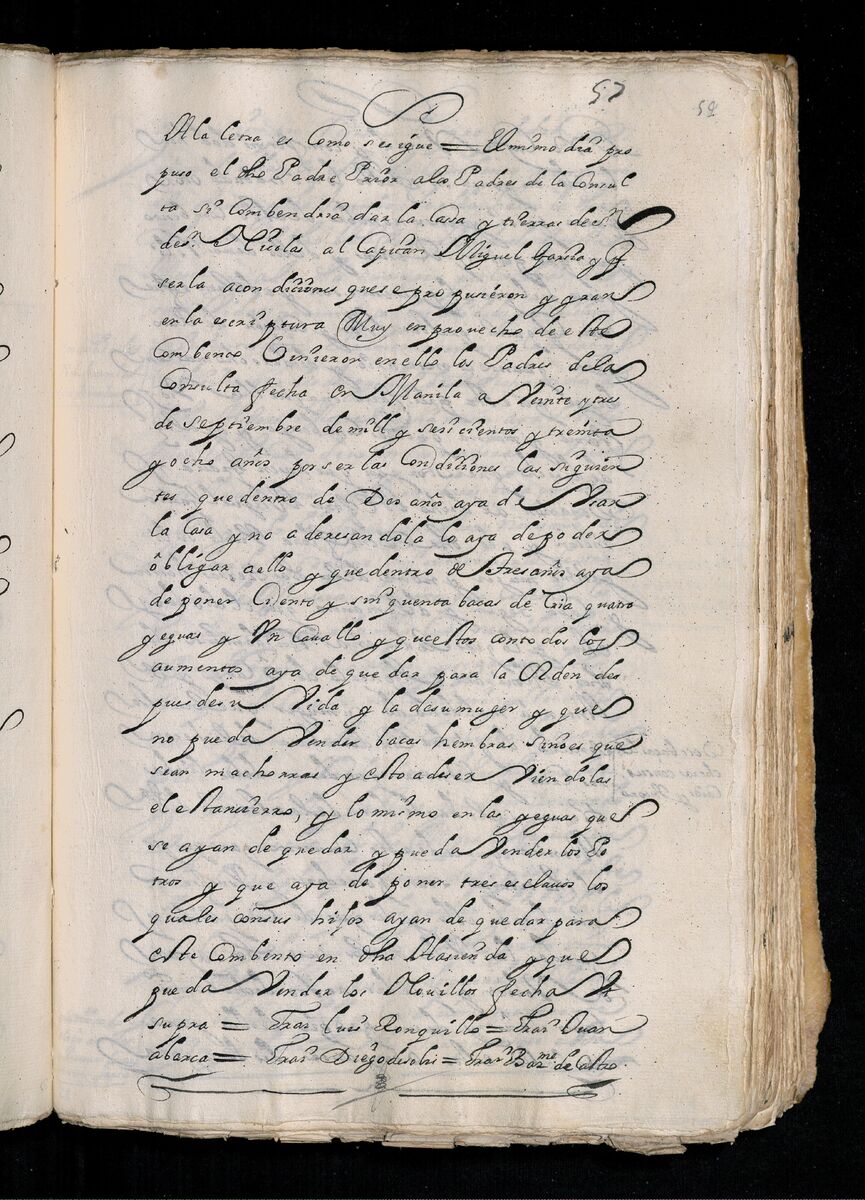 57
59
A la letra es como se sigue = El mismo dia pro
puso el dho Padre Prior a los Padres de la Consul
ta si combendria dar la Casa y tierras de sn
des. Nicolas al Capitan Miguel Garcia y
serla a condiciones que se propusieron y
en la escriptura Muy en provecho de este
Combento. Vinieron en ello los Padres de la
Consulta fecha en Manila a Veinte y tres
de septiembre de mill y seiscientos y treinta
y ocho años por ser las Condiciones las siguien
tes que dentro de Dos años aya de
la Casa y no aderesandola lo aya de poder
obligar a ello y que dentro de tres años aya
de poner Ciento y sinquenta bacas de Cria quatro
yeguas y Un Cavallo y que estos con todos los
aumentos aya de quedar para la Orden des
pues de su Vida y la de su muger y que
no pueda Vender bacas hembras sino es que
sean machorras y esto a de ser Viendolas
el estanciero, y lo mismo en las yeguas que
se ayan de quedar y pueda Vender los Po
tros y que aya de poner tres esclavos los
quales con sus hijos ayan de quedar para
este Combento en dha Hasienda y que
pueda Vender los Novillos fecha Vt
supra = Fray Luis Ronquillo = Fray Juan
abarca = Fray Diego de = Fray Barme de Castro